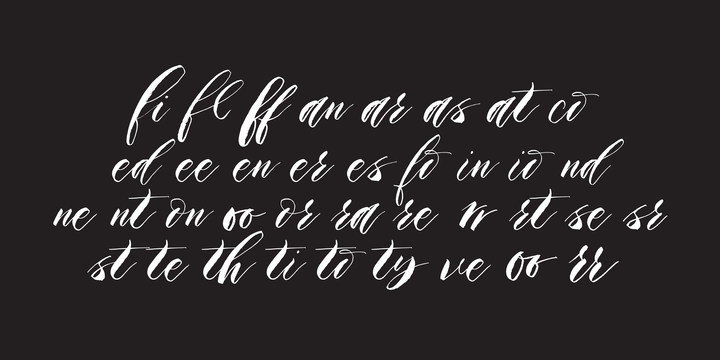 fi fl ff an ar as at co
ed ee en er es fo in io nd
ne nt on oo or ra re rr rt se sr
st te th ti to ty ve oo rr